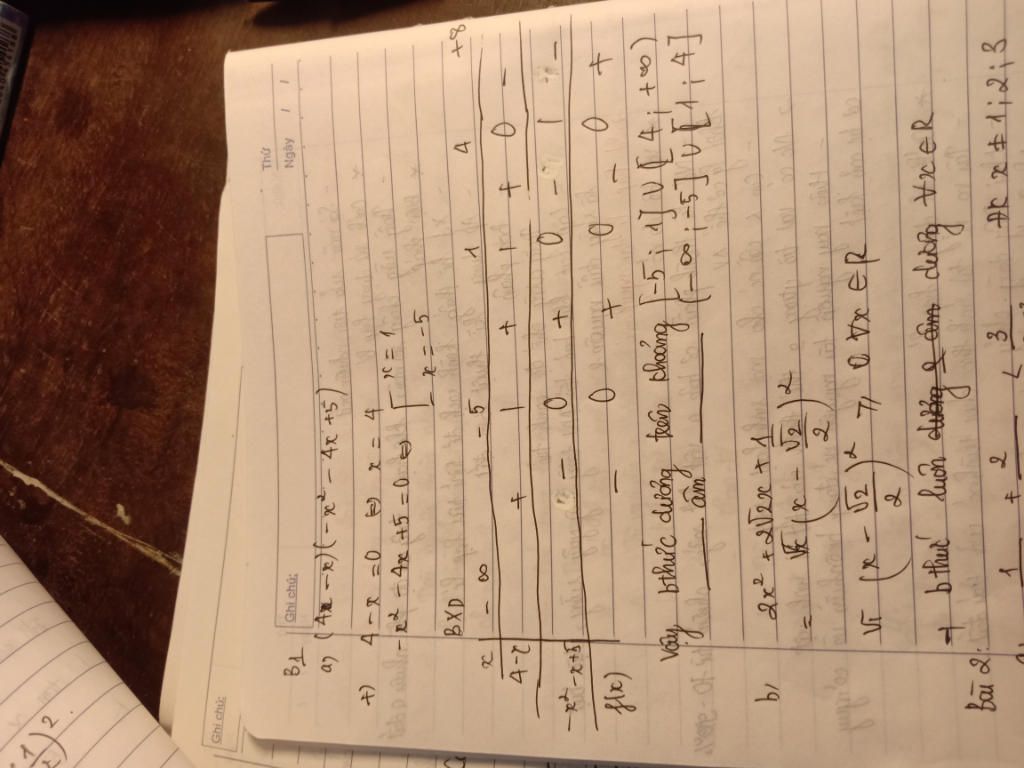 Thứ
Ngày / /
Ghi chú:
B1
a, (4 - x)(-x² - 4x + 5)
+) 4 - x = 0 ⇔ x = 4
-x² - 4x + 5 = 0 ⇔ [ x = 1
x = -5
BXD
x -∞ -5 1 4 +∞
4-x + | + | + 0 -
-x²-x+5 - 0 + 0 - | -
f(x) - 0 + 0 - 0 +
Vậy bthức dương trên khoảng [-5; 1] ∪ [4; +∞)
âm (-∞; -5] ∪ [1; 4]
b, 2x² + 2√2x + 1
= (x - √2/2)²
Vì (x - √2/2)² ≥ 0 ∀x ∈ R
→ bthức luôn dương ∀x ∈ R
Bài 2:
1 + 2 < 3 x ≠ 1; 2; 3
Ghi chú: